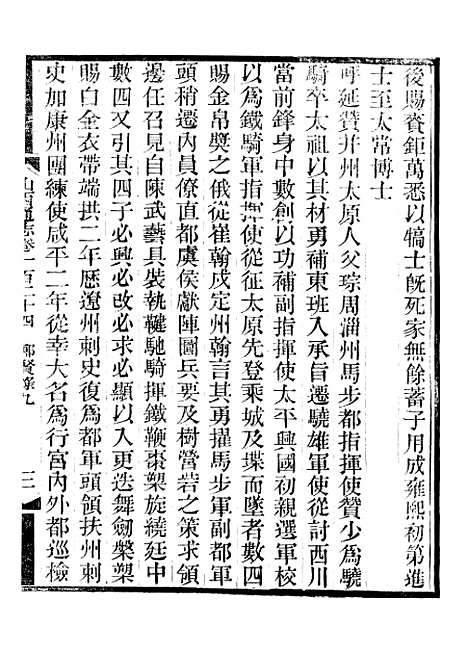 後賜賚鉅萬悉以犒士旣死家無餘蓄子用成雍熙初第進
士至太常博士
呼延贊并州太原人父琮周淄州馬步都指揮使贊少爲驍
騎卒太祖以其材勇補東班入承旨遷驍雄軍使從討西川
當前鋒身中數創以功補副指揮使太平興國初親選軍校
以爲鐵騎軍指揮使從征太原先登乘城及堞而墜者數四
賜金帛獎之俄從崔翰戍定州翰言其勇擢馬步軍副都軍
頭稍遷內員僚直都虞侯獻陣圖兵要及樹營砦之策求領
邊任召見自陳武藝具裝執鞬馳騎揮鐵鞭棗槊旋繞廷中
數四又引其四子必興必改必求必顯以入更迭舞劒槃槊
賜白金衣帶端拱二年歷遼州刺史復爲都軍頭領扶州刺
史加康州團練使咸平二年從幸大名爲行宮內外都巡檢
山西通志卷一百二十四 鄉賢錄九 三